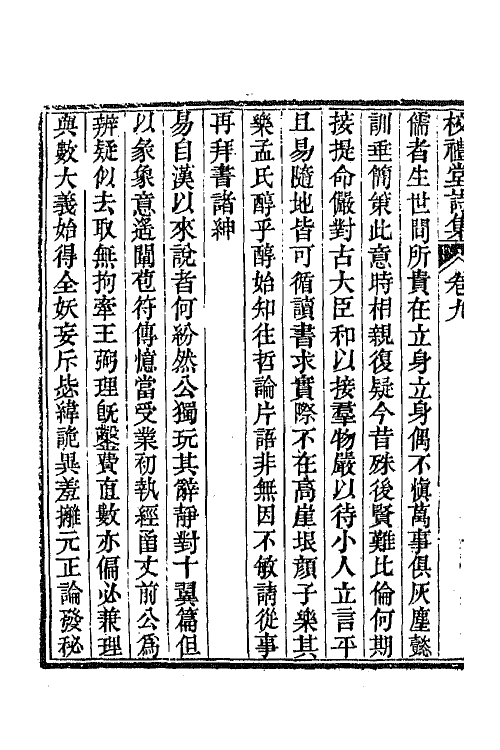 校禮堂詩集 卷九
儒者生世間所貴在立身立身偶不愼萬事俱灰塵懿
訓垂簡策此意時相親復疑今昔殊後賢難比倫何期
接提命儼對古大臣和以接羣物嚴以待小人立言平
且易隨地皆可循讀書求實際不在高崖垠顔子樂其
樂孟氏醇乎醇始知往哲論片語非無因不敏請從事
再拜書諸紳
易自漢以來說者何紛然公獨玩其辭靜對十翼篇但
以象象意遙闡苞符傳憶當受業初執經函丈前公爲
辨疑似去取無拘牽王弼理旣鑿費直數亦偏必兼理
與數大義始得全妖妄斥毖緯詭異羞擁元正論發秘